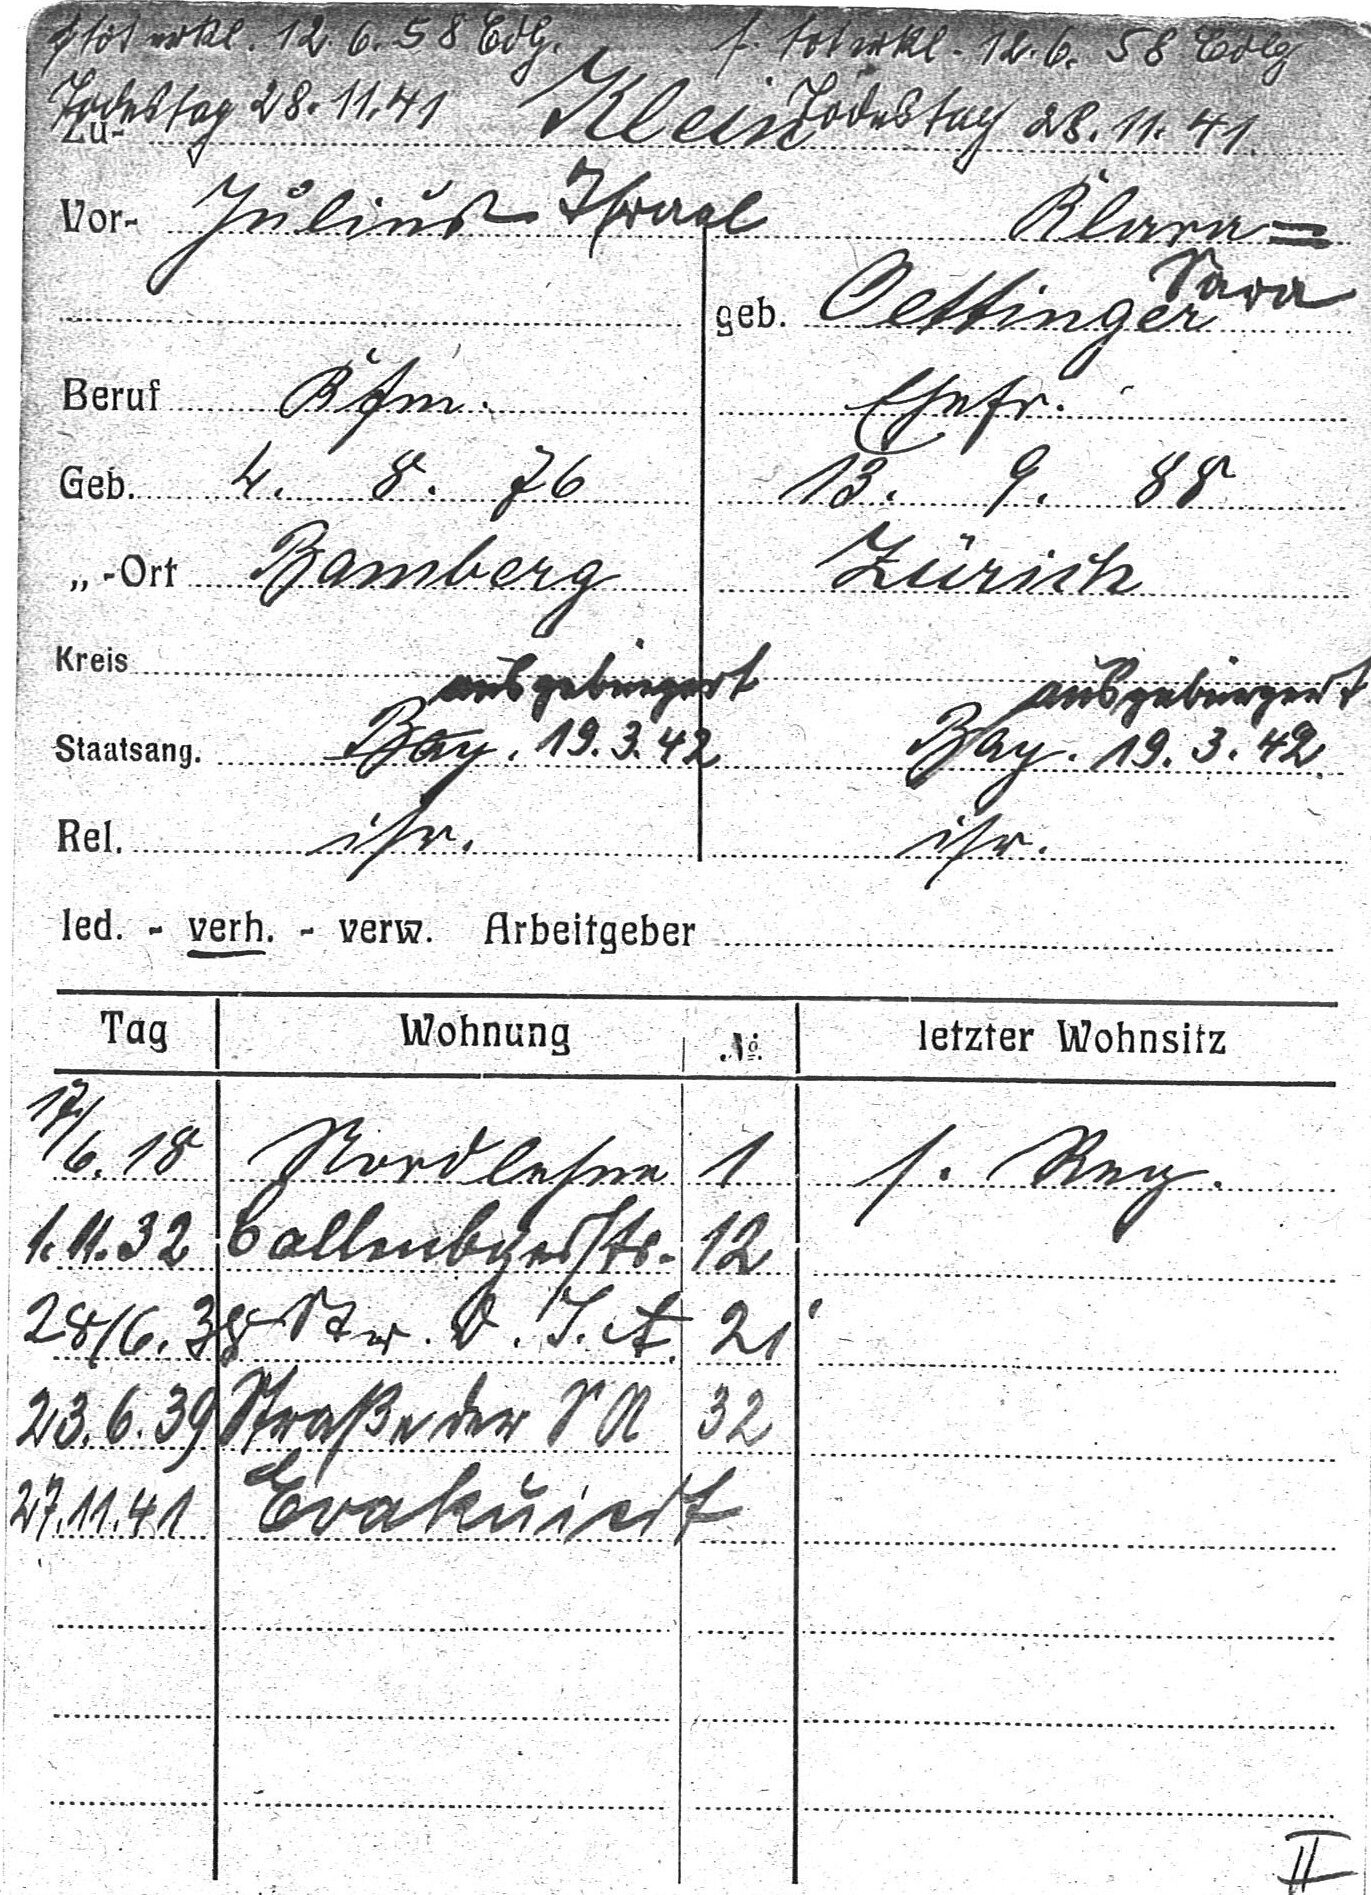 f. tot erkl. 12.6.58 Cobg. f. tot erkl. 12.6.58 Cobg
Todestag 28.11.41 Klein Todestag 28.11.41.
Zu-
Vor- Julius Israel Klara=
Sara
geb. Oettinger
Beruf Kfm. Ehefr.
Geb. 4. 8. 76 13. 9. 88
„-Ort Bamberg Zürich
Kreis
ausgebürgert ausgebürgert
Staatsang. Bay. 19.3.42 Bay. 19.3.42
Rel. isr. isr.
led. - verh. - verw. Arbeitgeber
Tag Wohnung № letzter Wohnsitz
17/6.18 Nordlehne 1 s. Reg.
1.11.32 Callenbgerstr. 12
28/6.38 Str. d. S.A. 21
23.6.39 Straße der SA 32
27.11.41 Evakuiert
II